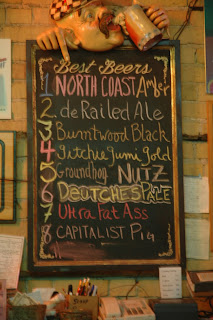 Best Beers
1 NORTH COAST Amber
2. deRailed Ale
3 Burntwood Black
4 Gitchie Gumi Gold
5 Groundhog NUTZ
6 DEUTCHES PALE
7 Uhra Fat Ass
8 CAPITALIST Pig